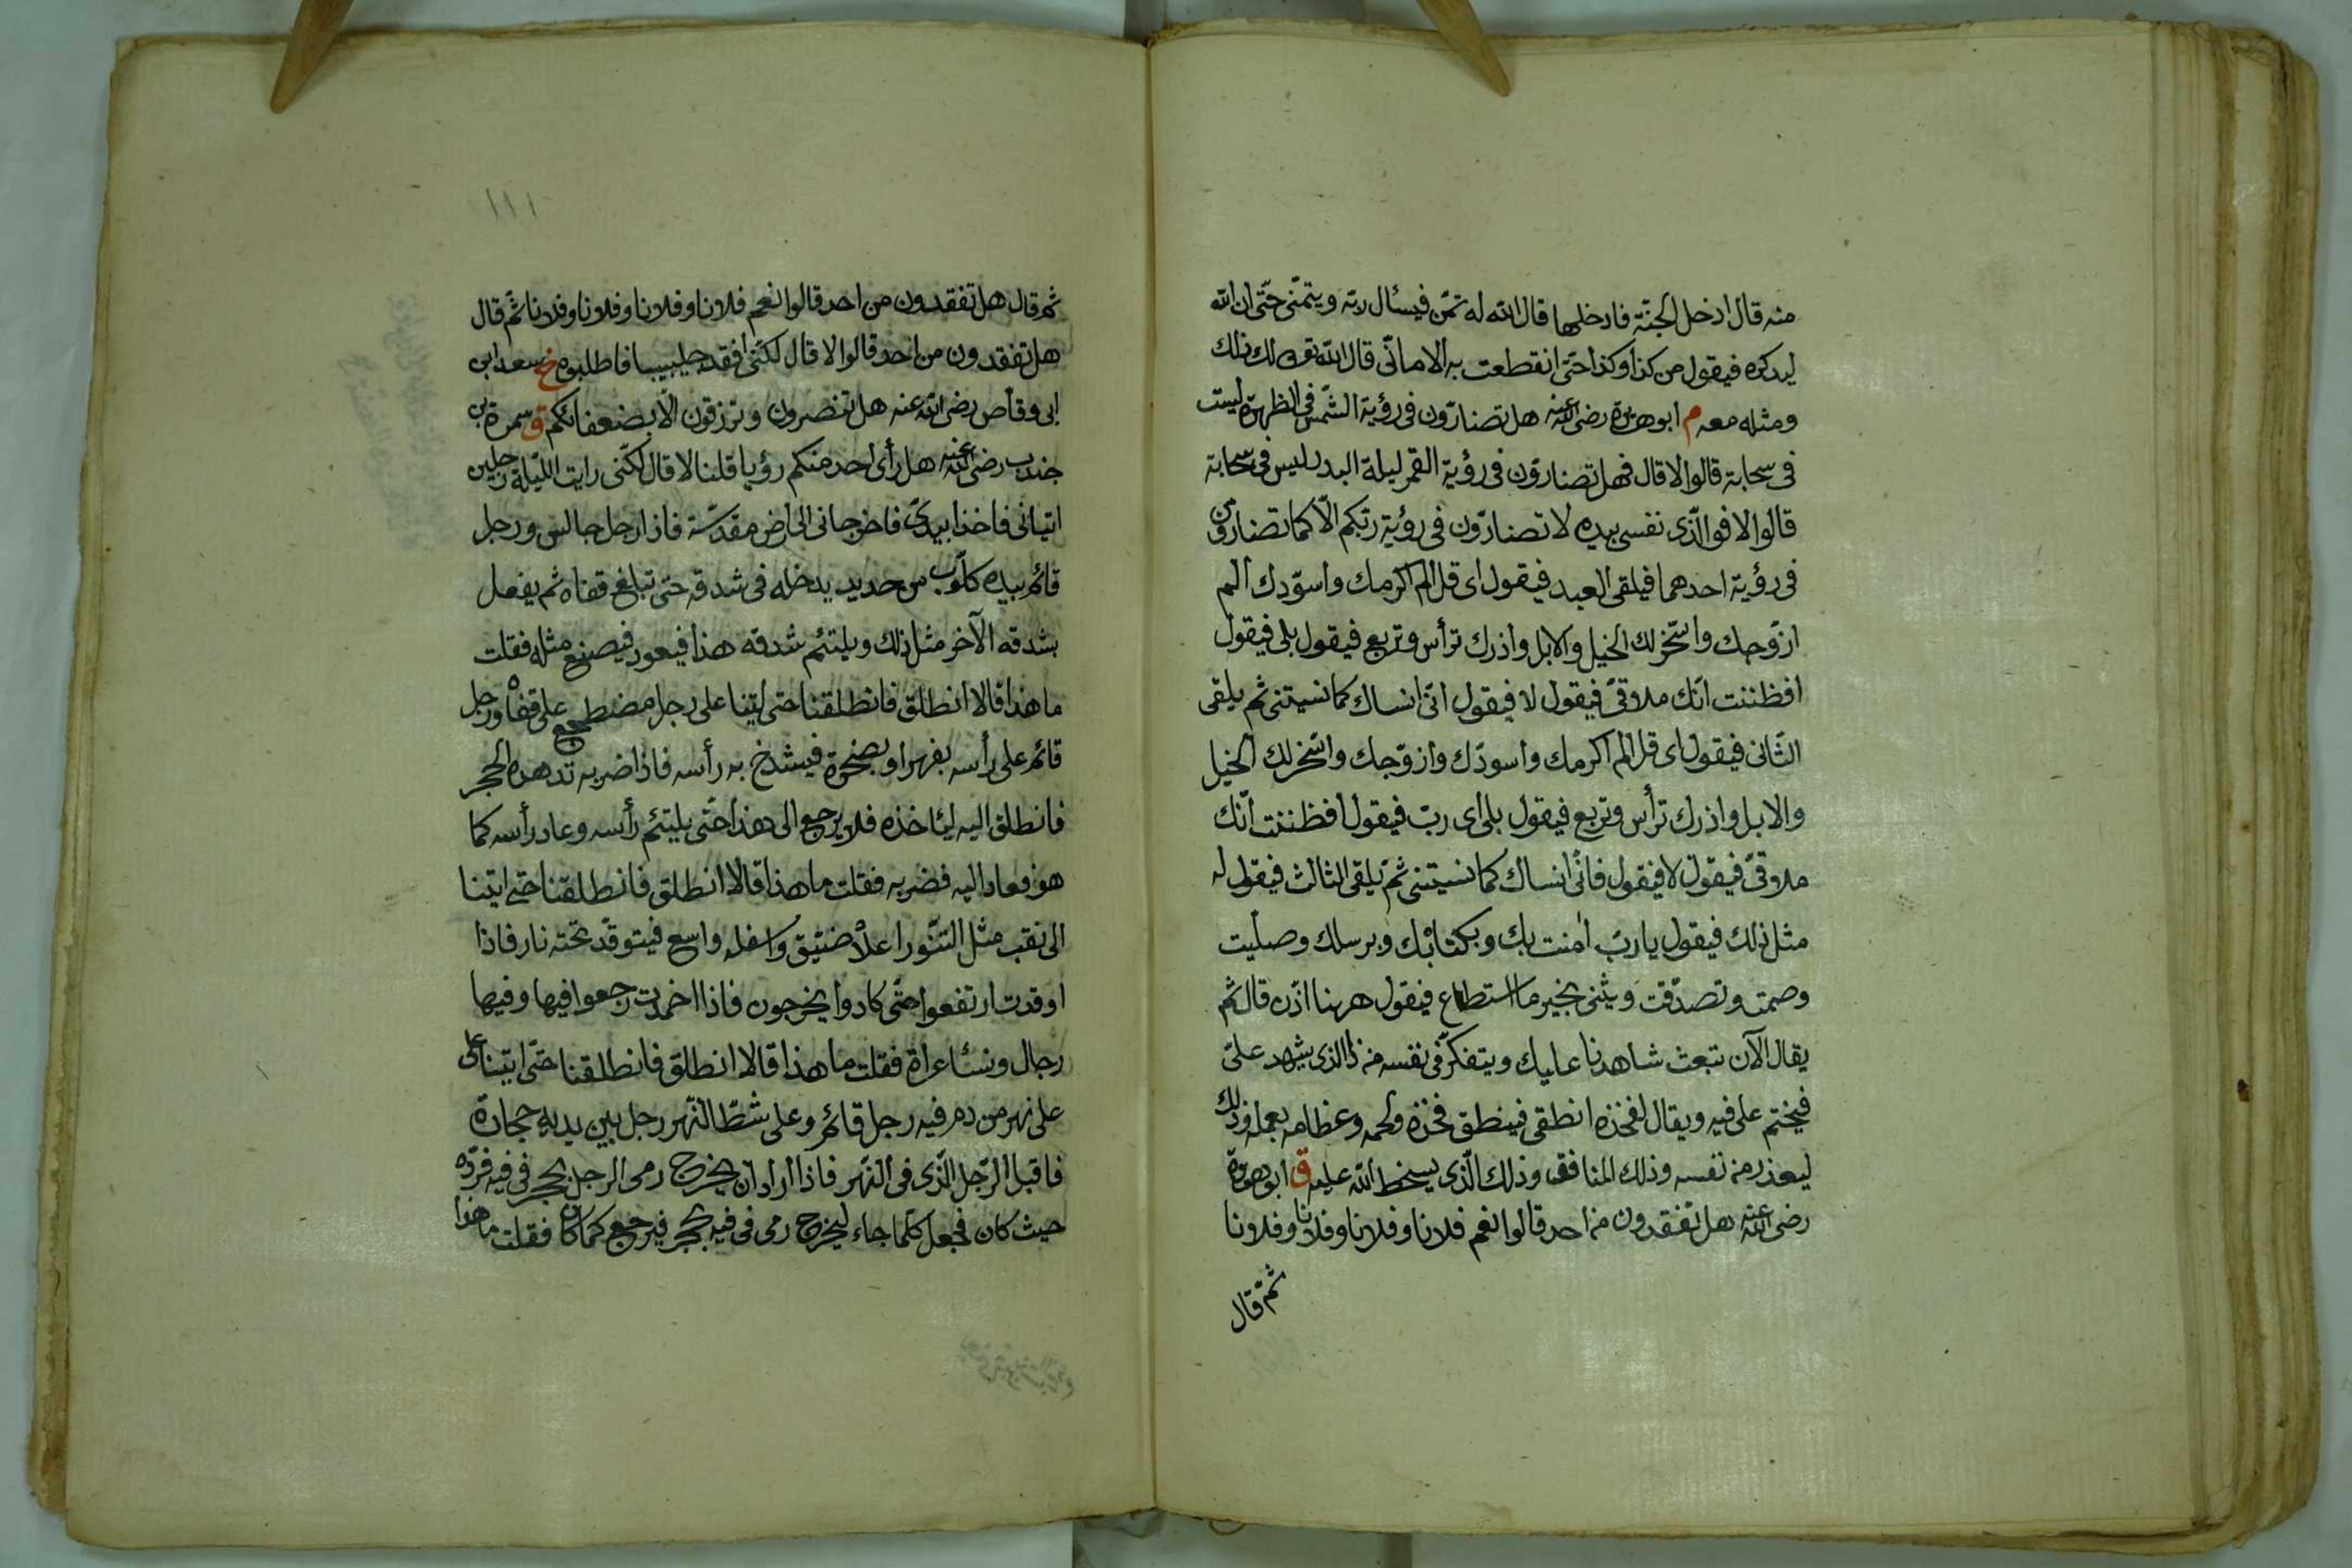 منه قال ادخل الجنّة فادخلها قال الله له تمنّ فيسئال ربّه ويتمنّى حتّى ان الله
ليذكره فيقول من كذا وكذا حتّى انقطعت به الامانّى قال الله تعه لك ذلك
ومثله معه م ابو هريرة رضى الله عنه هل تضارّون فى رؤية الشّمس فى الظهيرة ليست
فى سحابة قالوا لا قال فهل تضارّون فى رؤية القمر ليلة البدر ليس فى سحابة
قالوا لا فوالّذى نفسى بيده لا تضارّون فى رؤية ربّكم الّا كما تضارّون
فى رؤية احدهما فيلقى العبد فيقول اى قل الم اكرمك واسوّدك الم
ازوّجك واسّخر لك الخيل والابل واذرك ترأس وتربع فيقول بلى فيقول
افظننت انّك ملاقىّ فيقول لا فيقول انّى انساك كما نسيتنى ثم يلقى
الثّانى فيقول اى قل الم اكرمك واسودّك وازوّجك واسّخر لك الخيل
والابل واذرك ترأس وتربع فيقول بلى اى ربّ فيقول افظننت انّك
ملاقىّ فيقول لا فيقول فانّى انساك كما نسيتنى ثمّ يلقى الثالث فيقول له
مثل ذلك فيقول يا ربّ امنت بك وبكتابك وبرسلك وصليت
وصمت وتصدّقت ويثنى بخير ما استطاع فيقول ههنا اذن قال ثم
يقال الآن نبعث شاهدنا عليك ويتفكرّ فى نفسه من ذا الذى يشهد علىّ
فيختم على فيه ويقال لفخذه انطقى فينطق فخذه ولحمه وعظامه بعمله وذلك
ليعذر من نفسه وذلك المنافق وذلك الّذى يسخط الله عليه ق ابو هريرة
رضى الله عنه هل تفقدون من احد قالوا نعم فلانا وفلانا وفلانا وفلانا
ثمّ قال
١١١
ثم قال هل تفقدون من احد قالوا نعم فلانا وفلانا وفلانا وفلانا ثم قال
هل تفقدون من احد قالوا لا قال لكنّى افقد جليبيبا فاطلبوه خ سعد ابن
ابى وقاص رضى الله عنه هل تنصرون وترزقون الّا بضعفائكم ق سمرة بن
جندب رضى الله عنه هل رأى احد منكم رؤيا قلنا لا قال لكنّى رايت اللّيلة رجلين
اتيانى فاخذا بيدىّ فاخرجانى الى ارض مقدّسة فاذا رجل جالس ورجل
قائم بيده كلّوب من حديد يدخله فى شدقه حتى تبلغ قفاه ثم يفعل
بشدقه الآخر مثل ذلك ويلتئم شدقه هذا فيعود فيصنع مثله فقلت
ما هذا قالا انطلق فانطلقنا حتى اتينا على رجل مضطجع على قفاه ورجل
قائم على رأسه بفهر او بصخرة فيشدخ به رأسه فاذا ضربه تدهده الحجر
فانطلق اليه ليأخذه فلا يرجع الى هذا حتّى يلتئم رأسه وعاد رأسه كما
هو فعاد اليه فضربه فقلت ما هذا قالا انطلق فانطلقنا حتى اتينا
الى نقب مثل التنّور اعلاه ضيّق واسفله واسع فيتوقّد تحته نار فاذا
اوقدت ارتفعوا حتّى كادوا يخرجون فاذا اخمدت رجعوا فيها وفيها
رجال ونسّاء عراة فقلت ما هذا قالا انطلق فانطلقنا حتّى اتينا على
على نهر من دم فيه رجل قائم وعلى شطّ النّهر رجل بين يديه حجارة
فاقبل الرّجل الّذى فى النّهر فاذا اراد ان يخرج رمى الرجل بحجر فى فيه فردّه
حيث كان فجعل كلّما جاء ليخرج رمى فى فيه بحجر فيرجع كما كان فقلت ما هذا